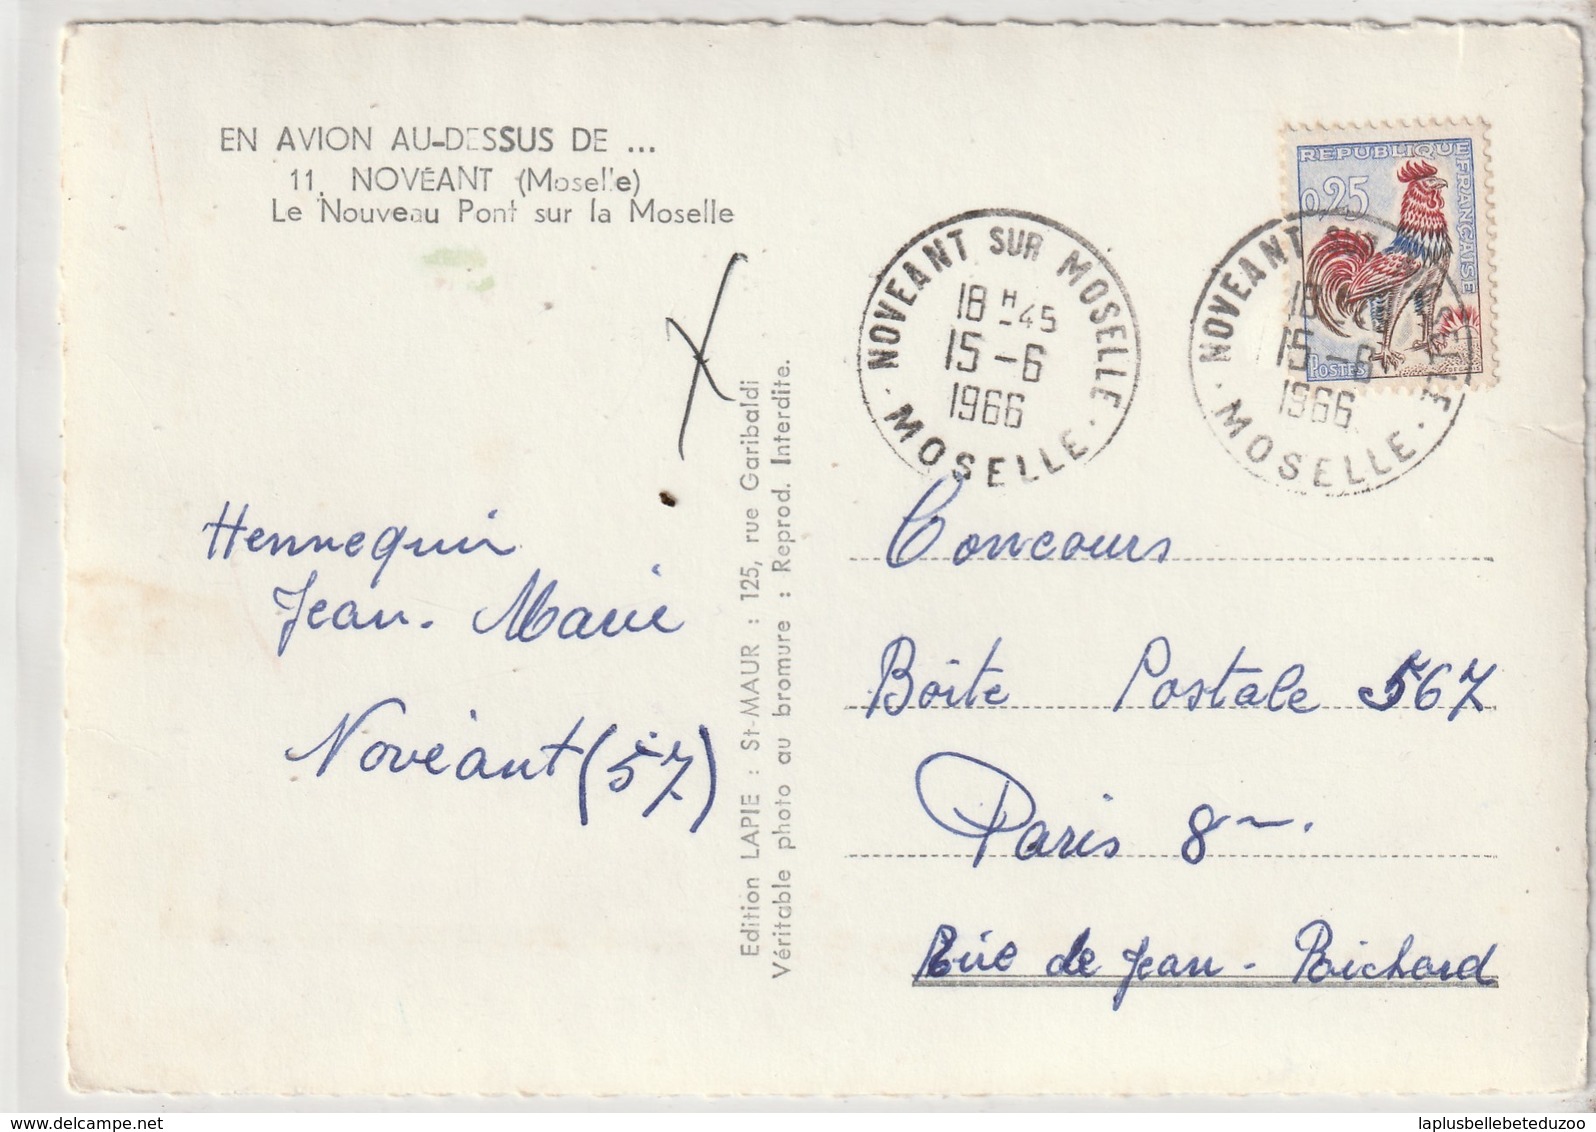 EN AVION AU-DESSUS DE ...
11. NOVÉANT (Moselle)
Le Nouveau Pont sur la Moselle
REPUBLIQUE FRANÇAISE
0,25
POSTES
NOVEANT SUR MOSELLE
18 H -45
15 -6
1966
MOSELLE
NOVEANT SUR MOSELLE
18
15 -6
1966
MOSELLE
Hennequin
Jean-Marie
Novéant (57)
Edition LAPIE : St-MAUR : 125, rue Garibaldi
Véritable photo au bromure : Reprod. Interdite.
Concours
Boîte Postale 567
Paris 8
Rue de Jean-Richard
laplusbellebeteduzoo
delcampe.net